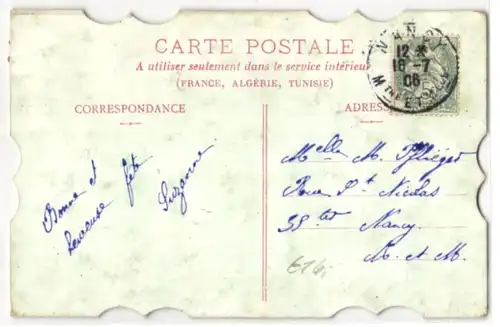 CARTE POSTALE
A utiliser seulement dans le service intérieur
(FRANCE, ALGÉRIE, TUNISIE)
CORRESPONDANCE
ADRESSE
NANCY
12
16-7
06
Bonne et
heureuse fête
Suzanne
Melle M. Pfliéger
Rue St Nicolas
35 ter Nancy
M. et M.